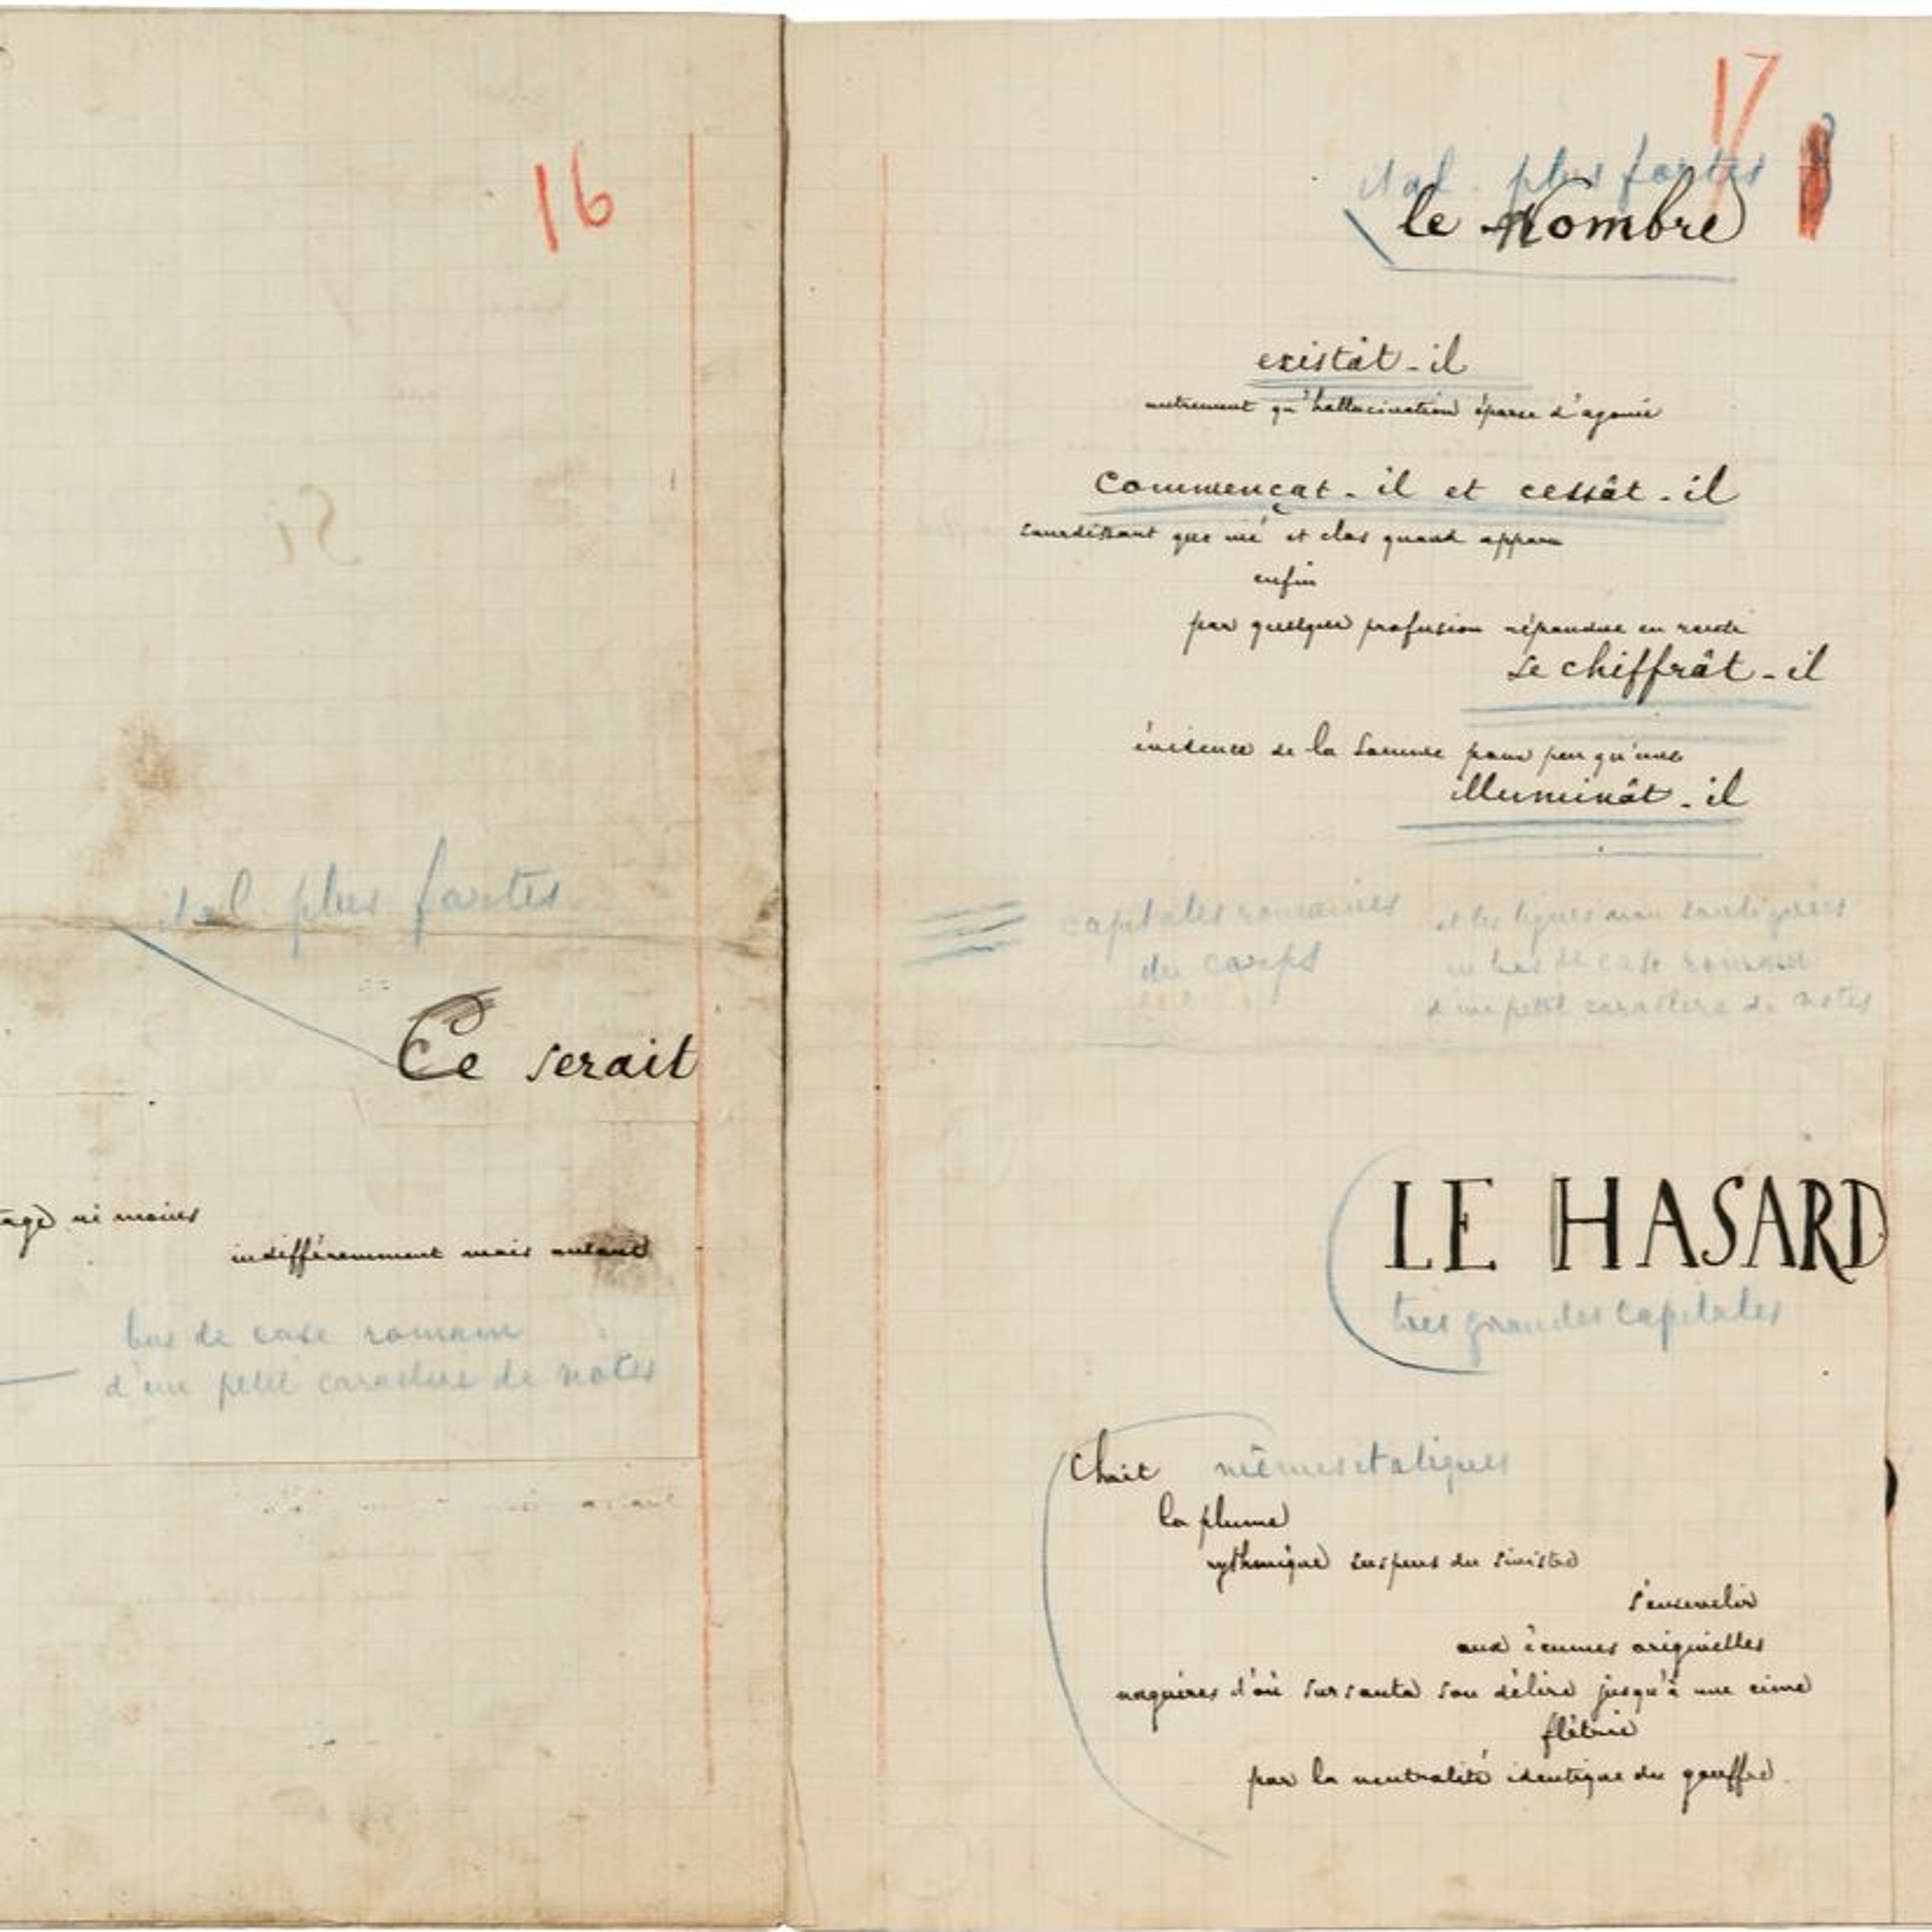 16
ital plus fortes
Ce serait
ni moins
indifféremment mais autant
bas de casse romain
d'un petit caractère de notes
17
ital. plus fortes
le Nombre
existât-il
autrement qu'hallucination éparse d'agonie
commençât-il et cessât-il
sourdissant que nié et clos quand apparu
enfin
par quelque profusion répandue en rareté
se chiffrât-il
évidence de la somme pour peu qu'une
illuminât-il
capitales romaines
du corps
et les lignes non soulignées
en bas de casse romain
d'un petit caractère de notes
LE HASARD
très grandes capitales
Choit mêmes italiques
la plume
rythmique suspens du sinistre
s'ensevelir
aux écumes originelles
naguères d'où sursauta son délire jusqu'à une cime
flétrie
par la neutralité identique du gouffre